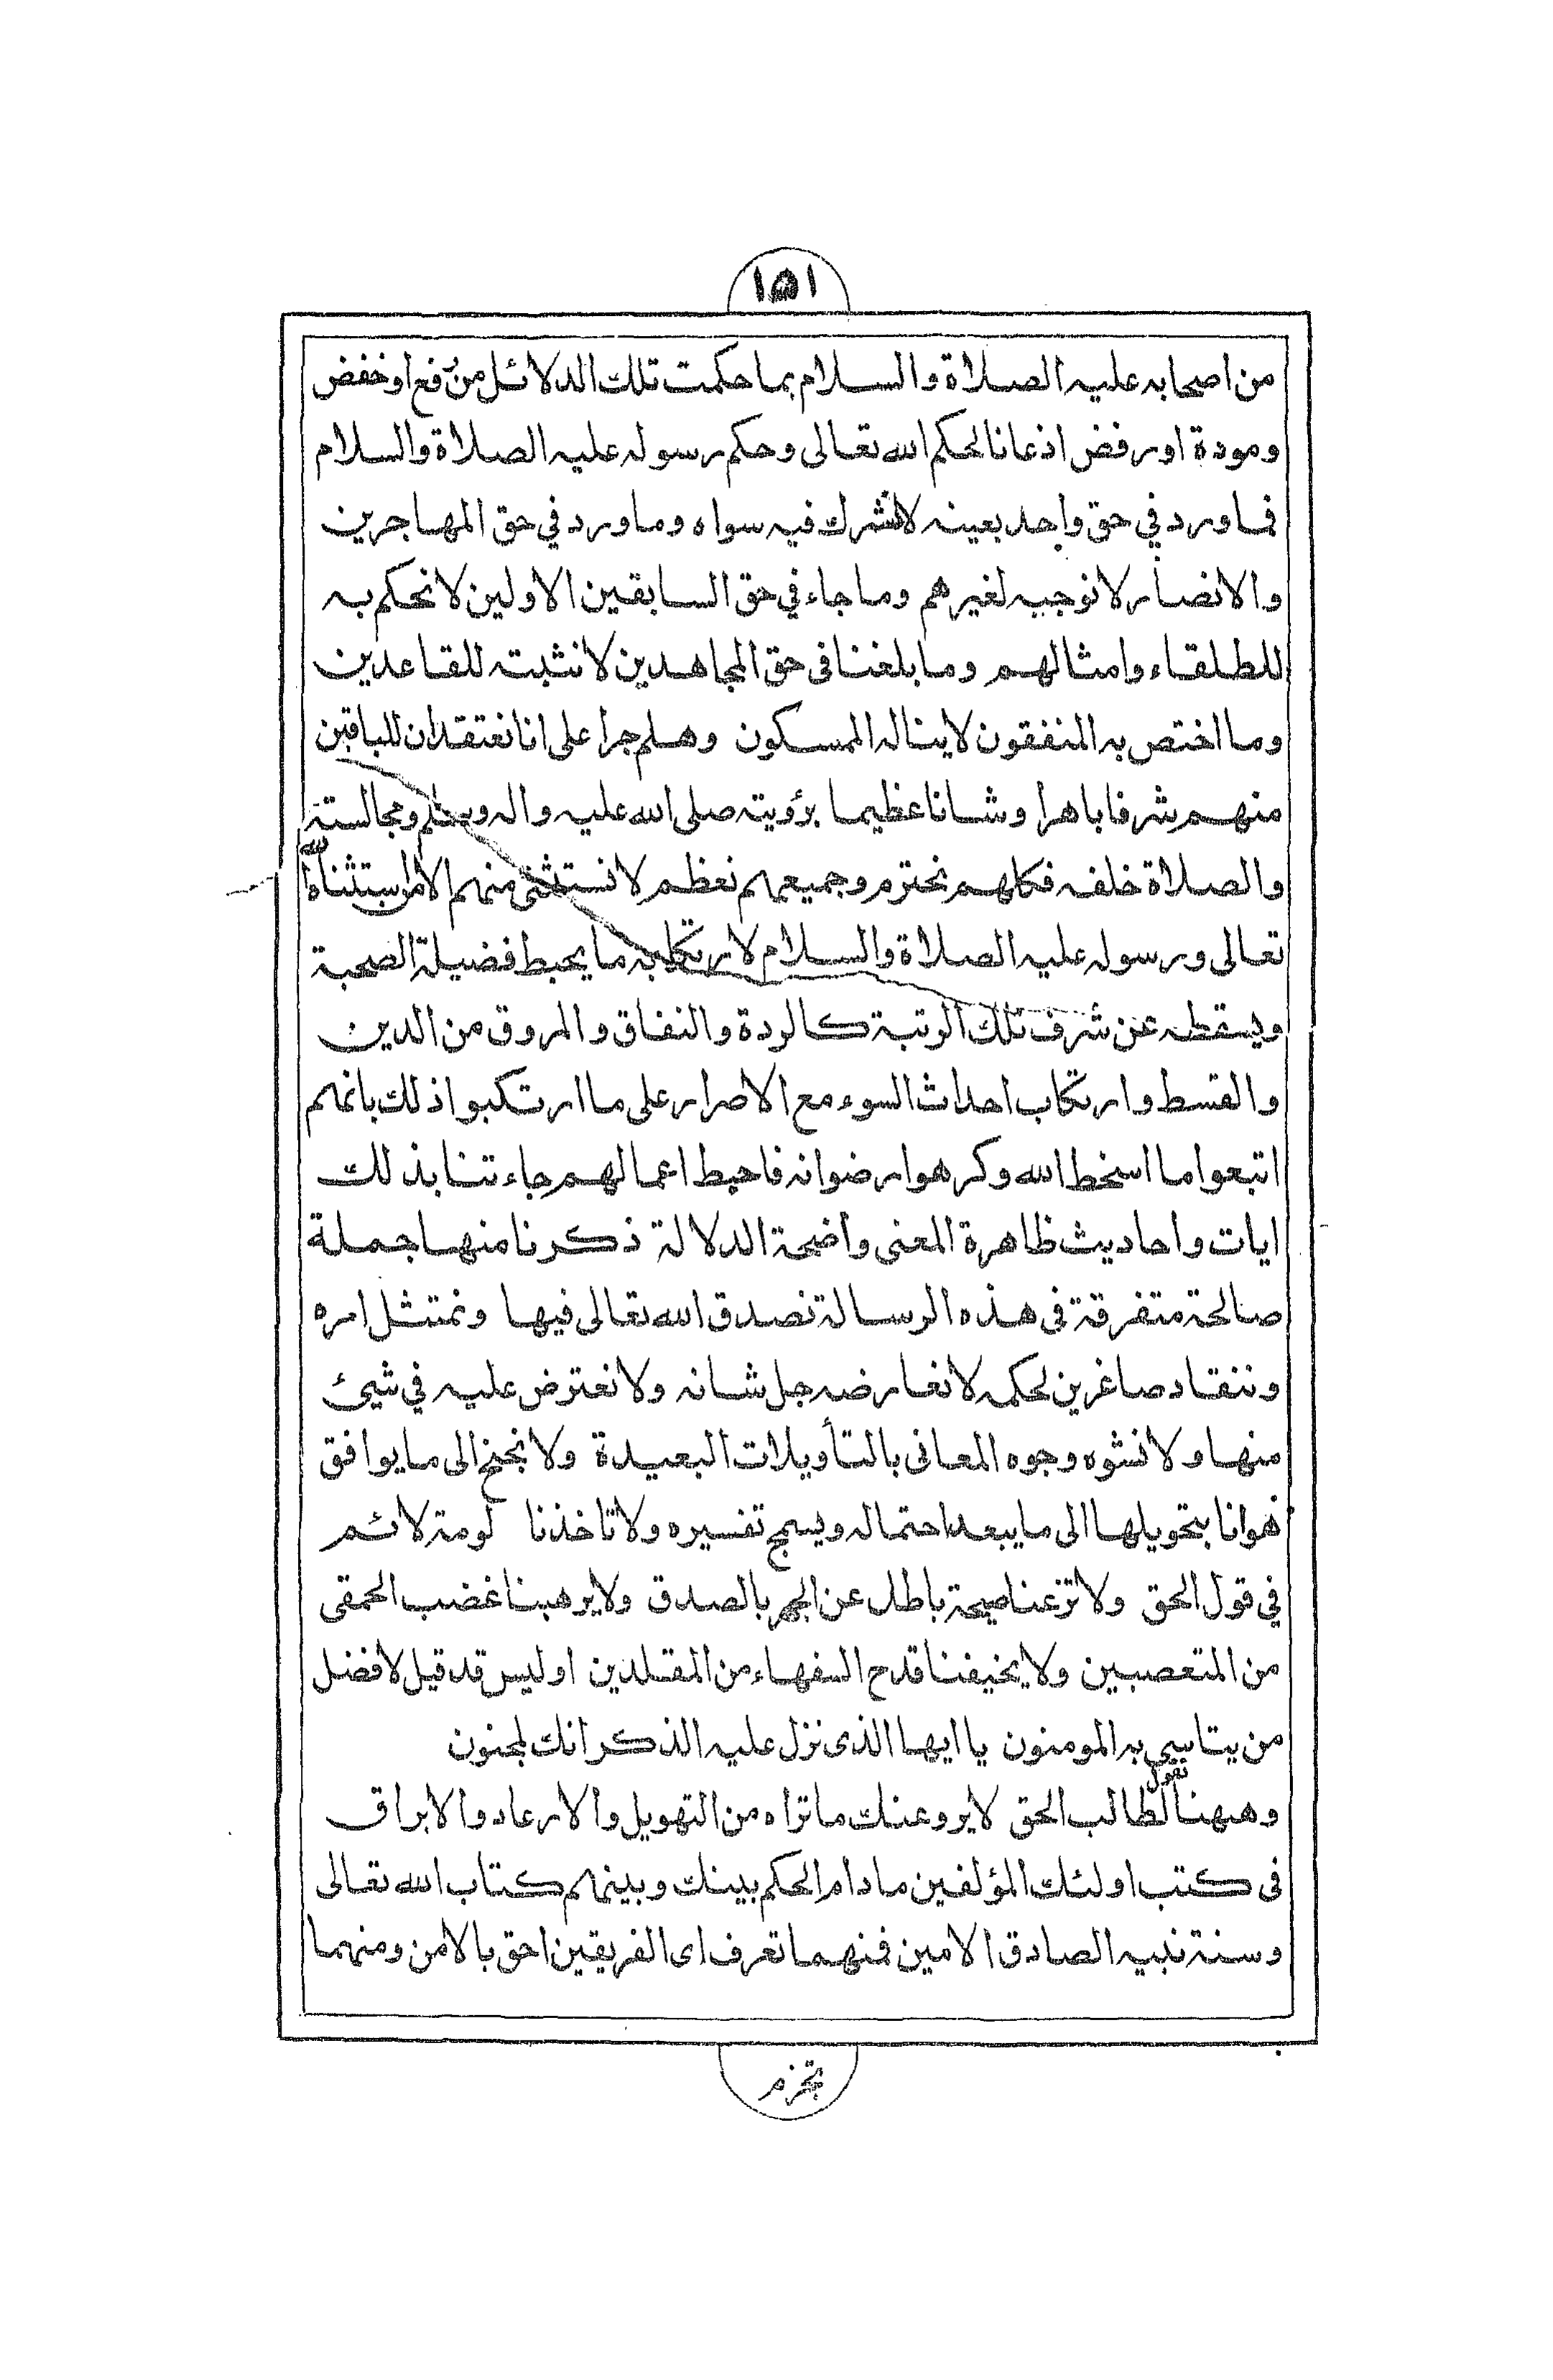 ١٥١
من اصحابه عليه الصلاة والسلام بما حكمت تلك الدلائل من رفع او خفض
ومودة او رفض اذعانا لحكم الله تعالى وحكم رسوله عليه الصلاة والسلام
فما ورد في حق واحد بعينه لا نشرك فيه سواه وما ورد في حق المهاجرين
والانصار لا نوجبه لغيرهم وما جاء في حق السابقين الاولين لا نحكم به
للطلقاء وامثالهم وما بلغنا في حق المجاهدين لا نثبته للقاعدين
وما اختص به المنفقون لا يناله الممسكون وهلم جرا على انا نعتقد ان للباقين
منهم شرفا باهرا وشانا عظيما برؤيته صلى الله عليه واله وسلم ومجالسته
والصلاة خلفه فكلهم نحترم وجميعهم نعظم لا نستثنى منهم الا من استثناه الله
تعالى ورسوله عليه الصلاة والسلام لارتكابه ما يحبط فضيلة الصحبة
ويسقطه عن شرف تلك الرتبة كالردة والنفاق والمروق من الدين
والقسط وارتكاب احداث السوء مع الاصرار على ما ارتكبوا ذلك بانهم
اتبعوا ما اسخط الله وكرهوا رضوانه فاحبط اعمالهم جاءتنا بذلك
ايات واحاديث ظاهرة المعنى واضحة الدلالة ذكرنا منها جملة
صالحة متفرقة في هذه الرسالة نصدق الله تعالى فيها ونمتثل امره
وننقاد صاغرين لحكمه لا نعارضه جل شانه ولا نعترض عليه في شيئ
منها ولا نشوه وجوه المعانى بالتأويلات البعيدة ولا نجنح الى ما يوافق
هوانا بتحويلها الى ما يبعد احتماله ويسمج تفسيره ولا تاخذنا لومة لائم
في قول الحق ولا تزعنا صيحة باطل عن الجهر بالصدق ولا يرهبنا غضب الحمقى
من المتعصبين ولا يخيفنا قدح السفهاء من المقلدين اوليس قد قيل لافضل
من يتاسي به المومنون يا ايها الذى نزل عليه الذكر انك لمجنون
وههنا نقول لطالب الحق لا يروعنك ما تراه من التهويل والارعاد والابراق
في كتب اولئك المؤلفين ما دام الحكم بينك وبينهم كتاب الله تعالى
وسنة نبيه الصادق الامين فمنهما تعرف اى الفريقين احق بالامن ومنهما
تجزم